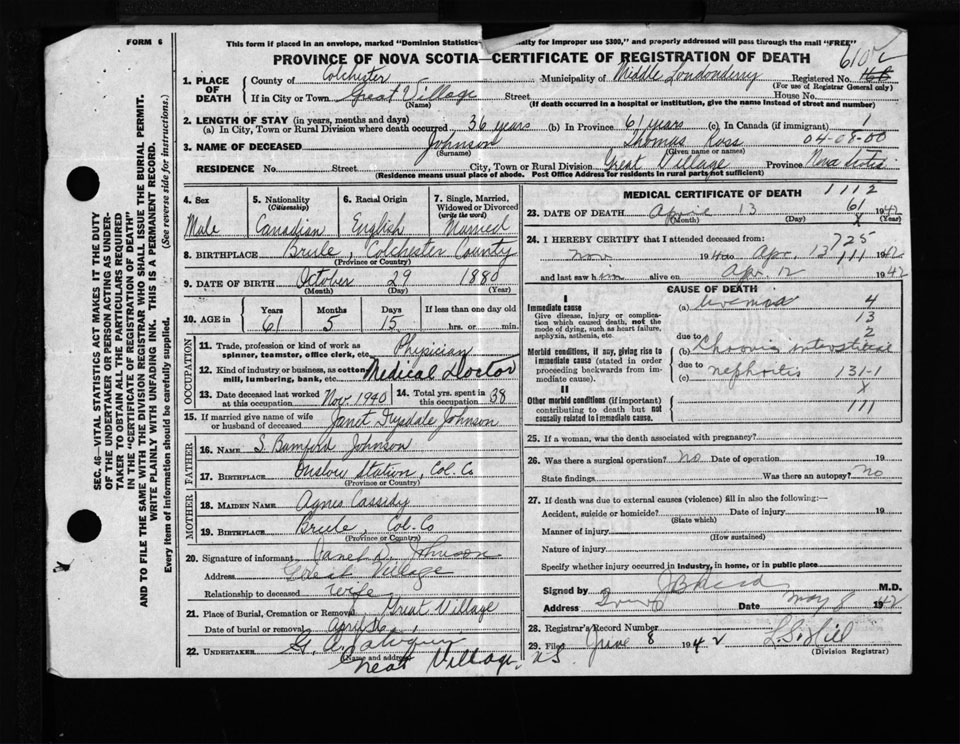 FORM 6
This form if placed in an envelope, marked "Dominion Statistics nalty for Improper use $300," and properly addressed will pass through the mail "FREE"
PROVINCE OF NOVA SCOTIA—CERTIFICATE OF REGISTRATION OF DEATH
6102
1. PLACE OF DEATH
County of Colchester Municipality of Middle Londonderry Registered No.
(For use of Registrar General only)
If in City or Town Great Village Street House No.
(Name) (If death occurred in a hospital or institution, give the name instead of street and number)
2. LENGTH OF STAY (in years, months and days)
(a) In City, Town or Rural Division where death occurred 36 years (b) In Province 61 years (c) In Canada (if immigrant) 1
3. NAME OF DECEASED Johnson Thomas Ross 04-09-00
(Surname) (Given name or names)
RESIDENCE No. Street City, Town or Rural Division Great Village Province Nova Scotia
(Residence means usual place of abode. Post Office Address for residents in rural parts not sufficient)
4. Sex Male
5. Nationality (Citizenship) Canadian
6. Racial Origin English
7. Single, Married, Widowed or Divorced (write the word) Married
8. BIRTHPLACE Brule, Colchester County
(Province or Country)
9. DATE OF BIRTH October 29 1880
(Month) (Day) (Year)
10. AGE in
Years Months Days If less than one day old
61 5 15 hrs. or min.
OCCUPATION
11. Trade, profession or kind of work as spinner, teamster, office clerk, etc. Physician
12. Kind of industry or business, as cotton mill, lumbering, bank, etc. Medical Doctor
13. Date deceased last worked at this occupation Nov 1940
14. Total yrs. spent in this occupation 38
15. If married give name of wife or husband of deceased Janet Dysdale Johnson
FATHER
16. NAME S. Bamford Johnson
17. BIRTHPLACE Onslow Station, Col. Co
(Province or Country)
MOTHER
18. MAIDEN NAME Agnes Cassidy
19. BIRTHPLACE Brule, Col. Co
(Province or Country)
20. Signature of informant Janet D. Johnson
Address Great Village
Relationship to deceased wife
21. Place of Burial, Cremation or Removal Great Village
Date of burial or removal April 16,
22. UNDERTAKER G. A.
(Name and address) Great Village, N.S.
MEDICAL CERTIFICATE OF DEATH 1112
23. DATE OF DEATH April 13 61 1942
(Month) (Day) x (Year)
24. I HEREBY CERTIFY that I attended deceased from: 725
Nov 1940 to Apr. 13 111 1942
and last saw him alive on Apr 12 1942
CAUSE OF DEATH
I
Immediate cause
Give disease, injury or complication which caused death, not the mode of dying, such as heart failure, asphyxia, asthenia, etc.
(a) Uremia 4
13
due to 2
Morbid conditions, if any, giving rise to immediate cause (stated in order proceeding backwards from immediate cause).
(b) Chronic interstitial
due to
(c) nephritis 131-1
x
II
Other morbid conditions (if important) contributing to death but not causally related to immediate cause.
111
25. If a woman, was the death associated with pregnancy?
26. Was there a surgical operation? No Date of operation 19
State findings Was there an autopsy? No
27. If death was due to external causes (violence) fill in also the following:—
Accident, suicide or homicide? Date of injury 19
(State which)
Manner of injury
(How sustained)
Nature of injury
Specify whether injury occurred in industry, in home, or in public place
Signed by M.D.
Address Date May 8 1942
28. Registrar's Record Number
29. Filed June 8 1942 L. S. Hill
(Division Registrar)
SEC. 46—VITAL STATISTICS ACT MAKES IT THE DUTY
OF THE UNDERTAKER OR PERSON ACTING AS UNDERTAKER TO OBTAIN ALL THE PARTICULARS REQUIRED
IN THE "CERTIFICATE OF REGISTRATION OF DEATH"
AND TO FILE THE SAME WITH THE DIVISION REGISTRAR WHO SHALL ISSUE THE BURIAL PERMIT.
WRITE PLAINLY WITH UNFADING INK. THIS IS A PERMANENT RECORD.
Every item of information should be carefully supplied. (See reverse side for instructions.)